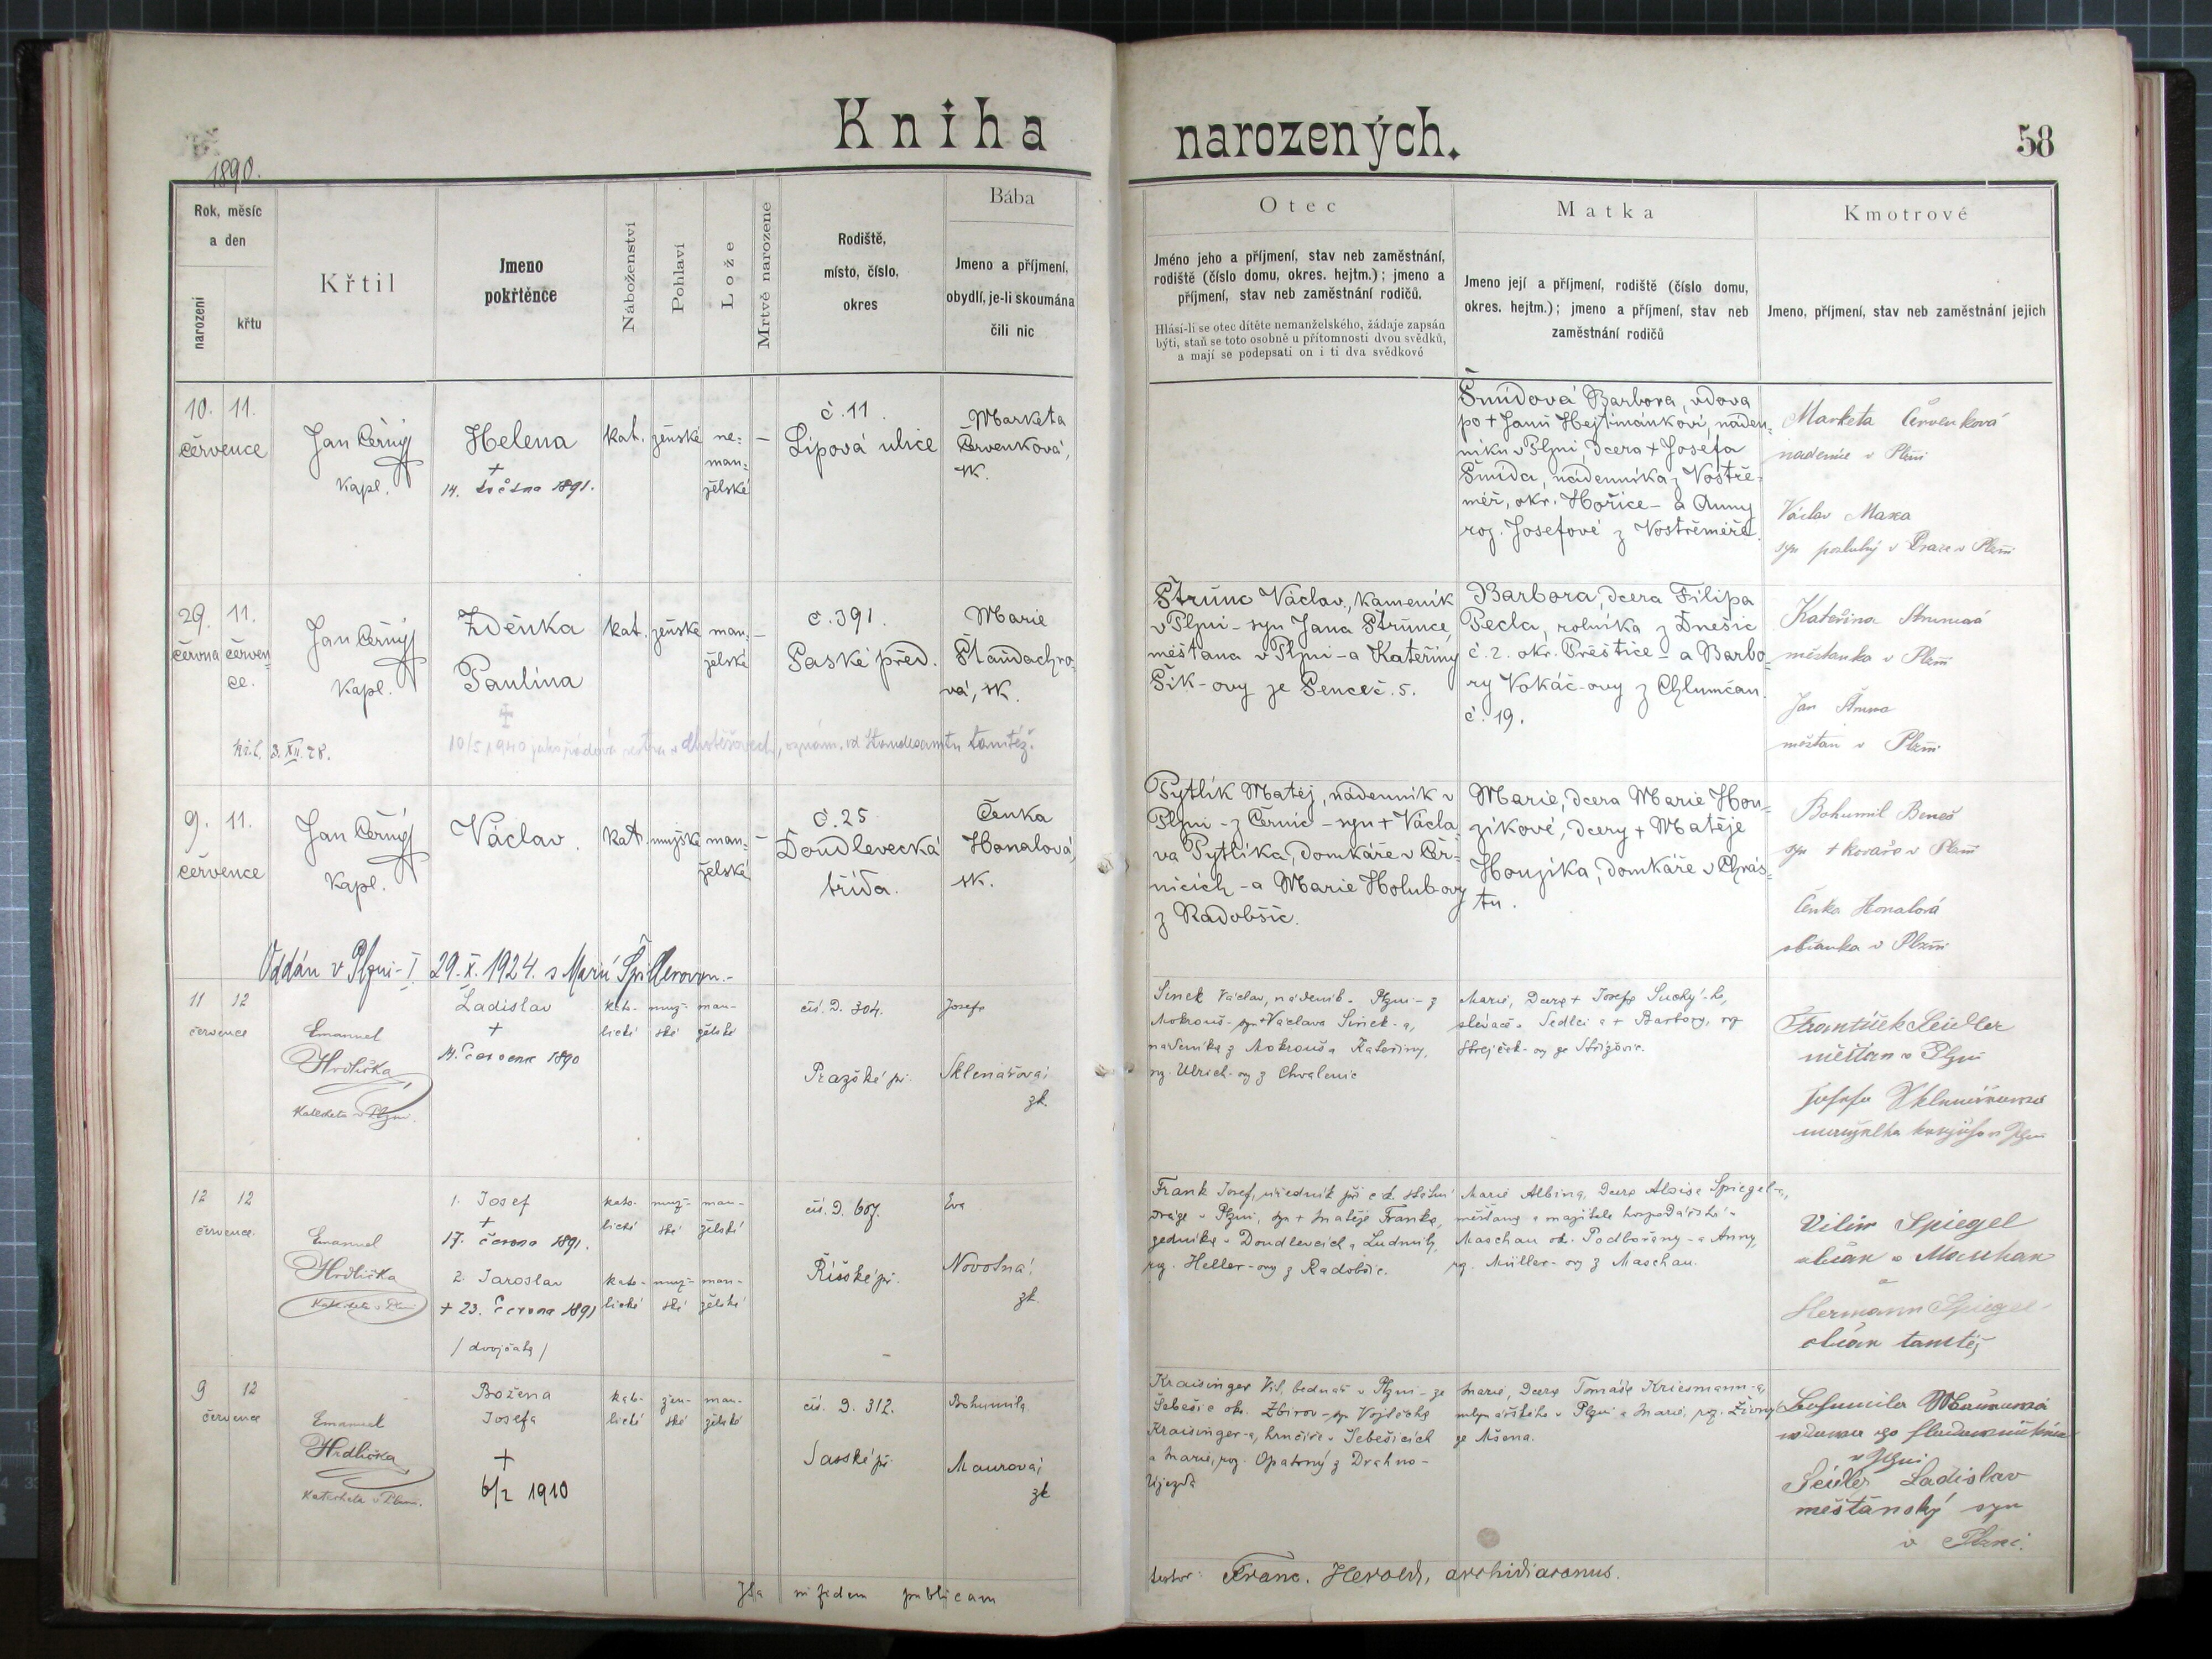 Kniha narozených.
58
1890.
Rok, měsíc
a den
narození
křtu
Křtil
Jmeno
pokřtěnce
Náboženství
Pohlaví
Lože
Mrtvě narozene
Rodiště,
místo, číslo,
okres
Bába
Jmeno a příjmení,
obydlí, je-li skoumána
čili nic
Otec
Jméno jeho a příjmení, stav neb zaměstnání,
rodiště (číslo domu, okres. hejtm.); jmeno a
příjmení, stav neb zaměstnání rodičů.
Hlásí-li se otec dítěte nemanželského, žádaje zapsán
býti, staň se toto osobně u přítomnosti dvou svědků,
a mají se podepsati on i ti dva svědkové
Matka
Jmeno její a příjmení, rodiště (číslo domu,
okres. hejtm.); jmeno a příjmení, stav neb
zaměstnání rodičů
Kmotrové
Jmeno, příjmení, stav neb zaměstnání jejich
10. 11.
července
Jan Černý
Kapl.
Helena
+
14. 1891.
kat.
ženské
ne-
man-
želské
–
č. 11.
Lipová ulice
Marketa
Červenková,
zk.
Šmídová Barbora, vdova
po + Janu Hejtmánkovi, náden-
níku v Plzni, dcera + Josefa
Šmída, nádenníka z Vostře-
měř, okr. Hořice - a Anny
roz. Josefové z Vostřeměře.
Marketa Červenková
v Plzni
Václav Maxa
syn v Plzni
29. 11.
června červen-
ce.
Jan Černý
Kapl.
Zdeňka
Paulina
kat.
ženské
man-
želské
–
č. 391.
Saské před.
Marie
Štandachro-
vá, zk.
Štrunc Václav, kameník
v Plzni - syn Jana Štrunce,
měšťana v Plzni - a Kateřiny
Šik-ovy ze Senec č. 5.
Barbora, dcera Filipa
Pecla, rolníka z Dnešic
č. 2. okr. Přeštice - a Barbo-
ry Vokáč-ovy z Chlumčan.
č. 19.
Kateřina Štruncová
měšťanka v Plzni
Jan Štrunc
měšťan v Plzni
kř. l. 3. XII. 28.
+
10/5 1940 jako řádová sestra v Chotěšovech, oznám. od Standesamtu tamtéž.
9. 11.
července
Jan Černý
Kapl.
Václav.
kat.
mužské
man-
želské
–
č. 25
Doudlevecká
třída.
Čenka
Honalová,
zk.
Pytlík Matěj, nádenník v
Plzni - z Černic - syn + Václa-
va Pytlíka, domkáře v Čer-
nicích - a Marie Holubovy
z Radobčic.
Marie, dcera Marie Hou-
zikové, dcery + Matěje
Houzíka, domkáře v Chrás-
tu.
Bohumil Beneš
syn + kováře v Plzni
Čenka Honalová
občanka v Plzni
Oddán v Plzni-I. 29. X. 1924. s Marií Špillerovou.-
11 12
července
Emanuel
Hrdlička
Katecheta v Plzni.
Ladislav
+
14. července 1890
kato-
lické
muž-
ské
man-
želské
čís. D. 304.
Pražské př.
Josefa
Sklenářová;
zk.
Václav, nádeník v Plzni - z
Mokrouš - syn + Václava
nádeníka z Mokrouš a Kateřiny,
roz. Ulrich-ovy z Chválenic
Marie, Dcera + Josefa Suchý-ho,
slévače v Sedlci a + Barbory, roz
Strejček-ovy ze Střížovic.
František Seidler
měšťan v Plzni
Josefa Sklenářová
v Plzni
12 12
července.
Emanuel
Hrdlička
Katecheta v Plzni
1. Josef
+
17. června 1891.
2. Jaroslav
+ 23. června 1891
/ dvojčata /
kato-
lické
muž-
ské
man-
želské
kato-
lické
muž-
ské
man-
želské
čís. D. 607.
Říšské př.
Eva
Novotná;
zk.
Frank Josef, úředník při c. k. státní
dráze v Plzni, syn + Matěje Franka,
v Doudlevcích a Ludmily,
roz. Heller-ovy z Radobčic.
Marie Albina, Dcera Aloise Spiegel-a,
měšťana a majitele hospodářství v
Maschau ok. Podbořany - a Anny,
roz. Müller-ovy z Maschau.
Vilém Spiegel
občan v Maschau
a
Hermann Spiegel
občan tamtéž
9 12
července
Emanuel
Hrdlička
Katecheta v Plzni.
Božena
Josefa
+
6/2 1910
kato-
lické
žen-
ské
man-
želské
čís. D. 312.
Saské př.
Bohumila
Maurová;
zk
Kraisinger Vít, bednář v Plzni - ze
Šebešic ok. Zbirov - syn Vojtěcha
Kraisinger-a, hrnčíře v Šebešicích
a Marie, roz. Opatrný z Drahno-
Újezda
Marie, Dcera Tomáše Kriesmann-a,
mlynářského v Plzni a Marie, roz. Živný
ze Mšena.
Bohumila Maurová
v Plzni
Seidler Ladislav
měšťanský syn
v Plzni.
Ita in fidem publicam
testor: Franc. Herold, archidiaconus.